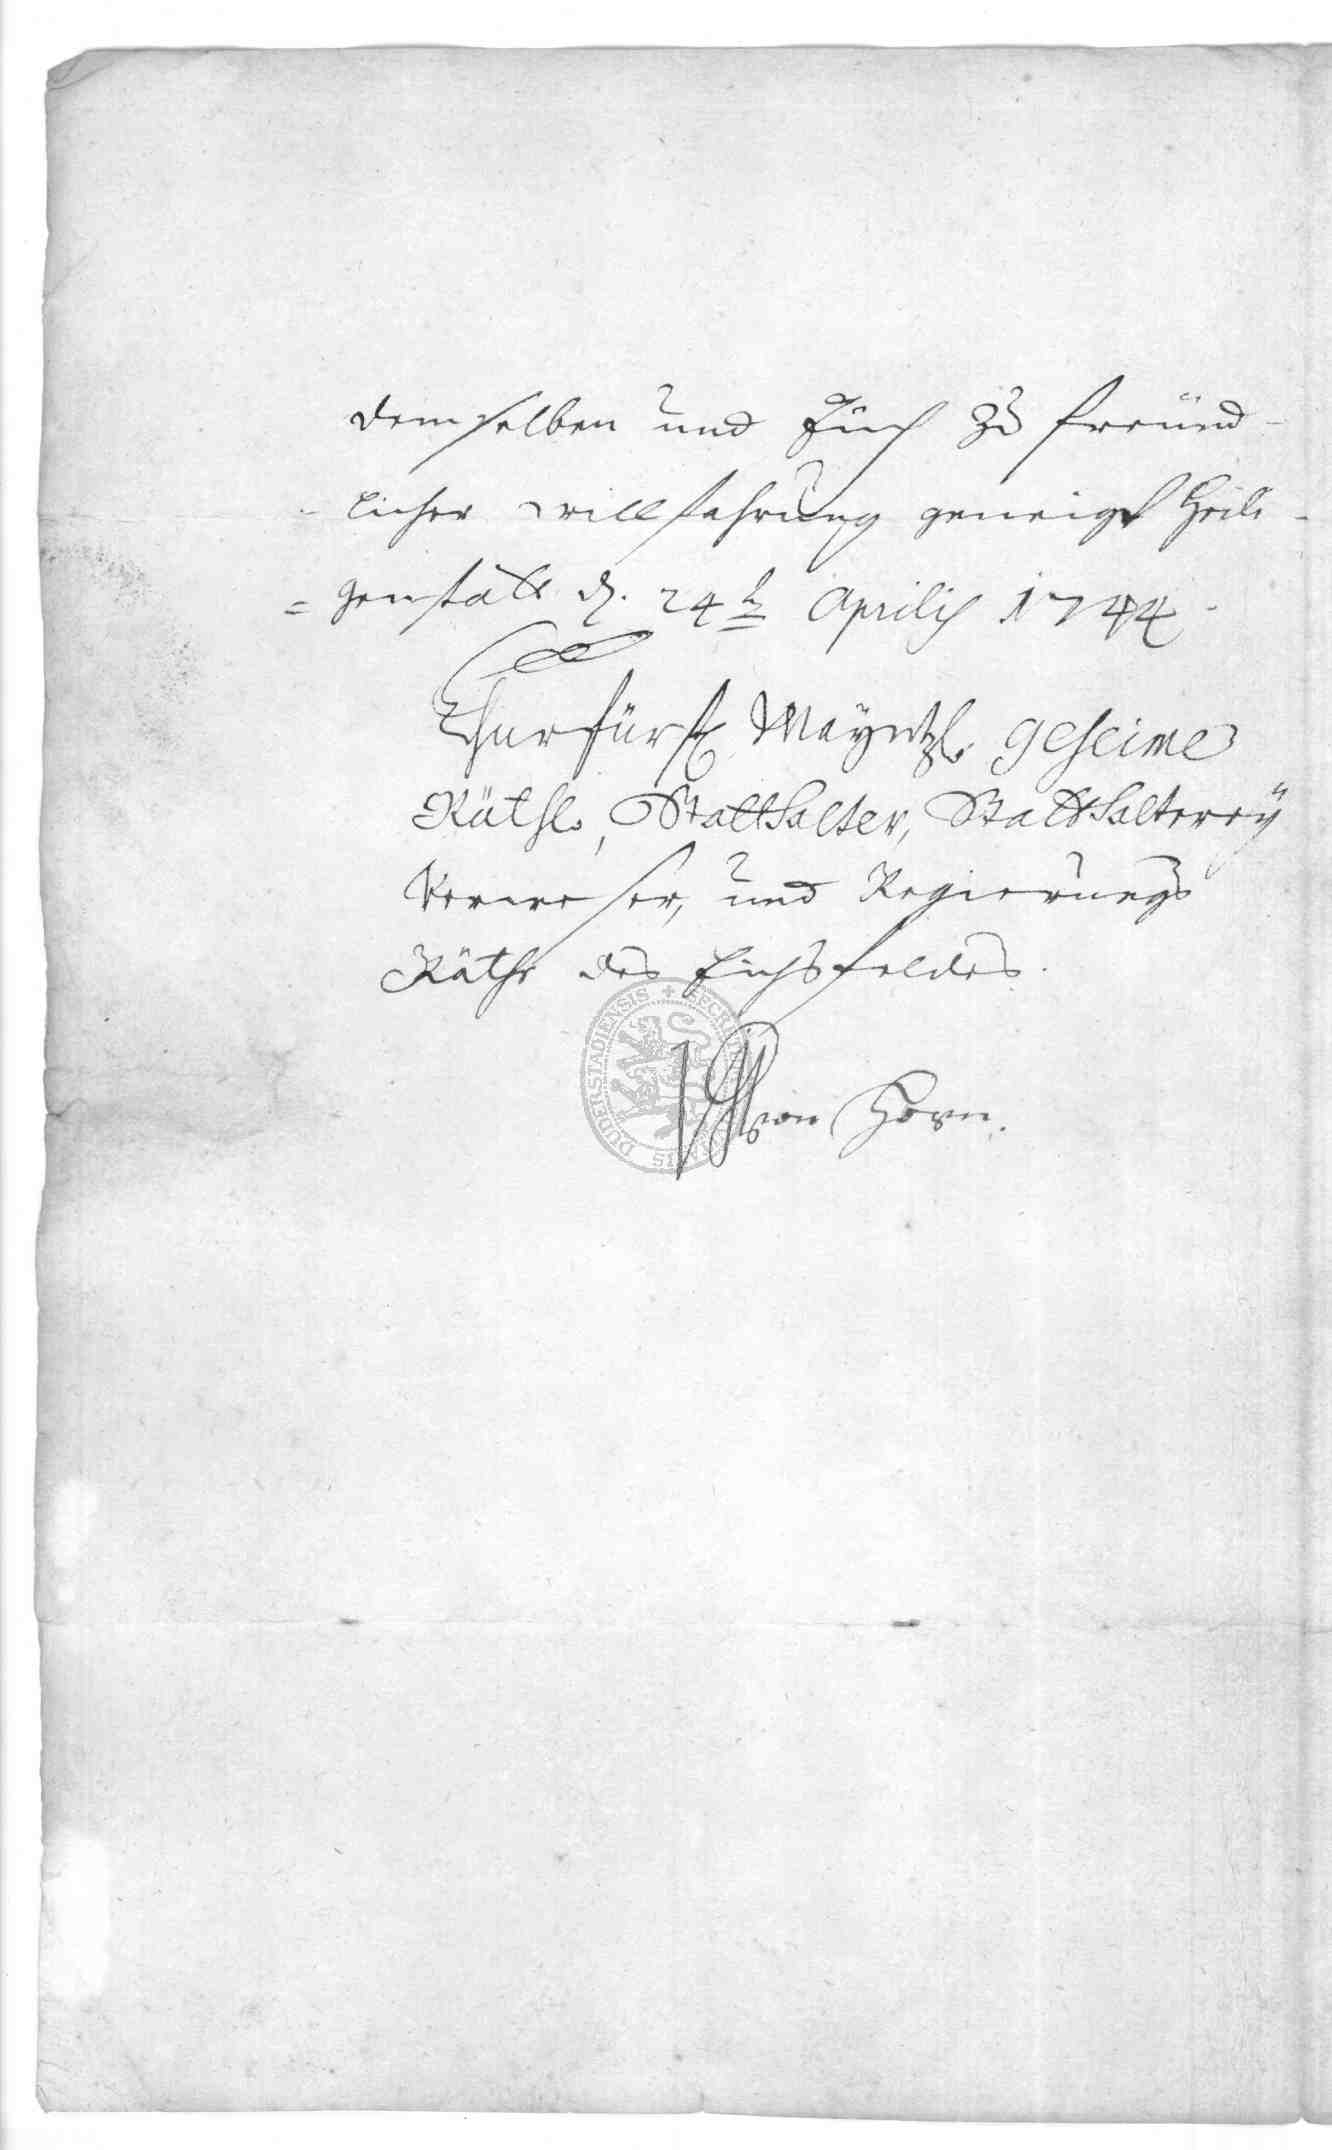 demselben und Euch zu freünd-
-licher willfahrung geneigt Heili-
=genstatt d. 24t Aprilis 1744.
Churfürstl. Mayntzl. geheime
Räthe, Statthalter, Statthalterey
Verweser, und Regierungs
Räthe des Eichsfeldes.
von Horn.
DUDERSTADIENSIS